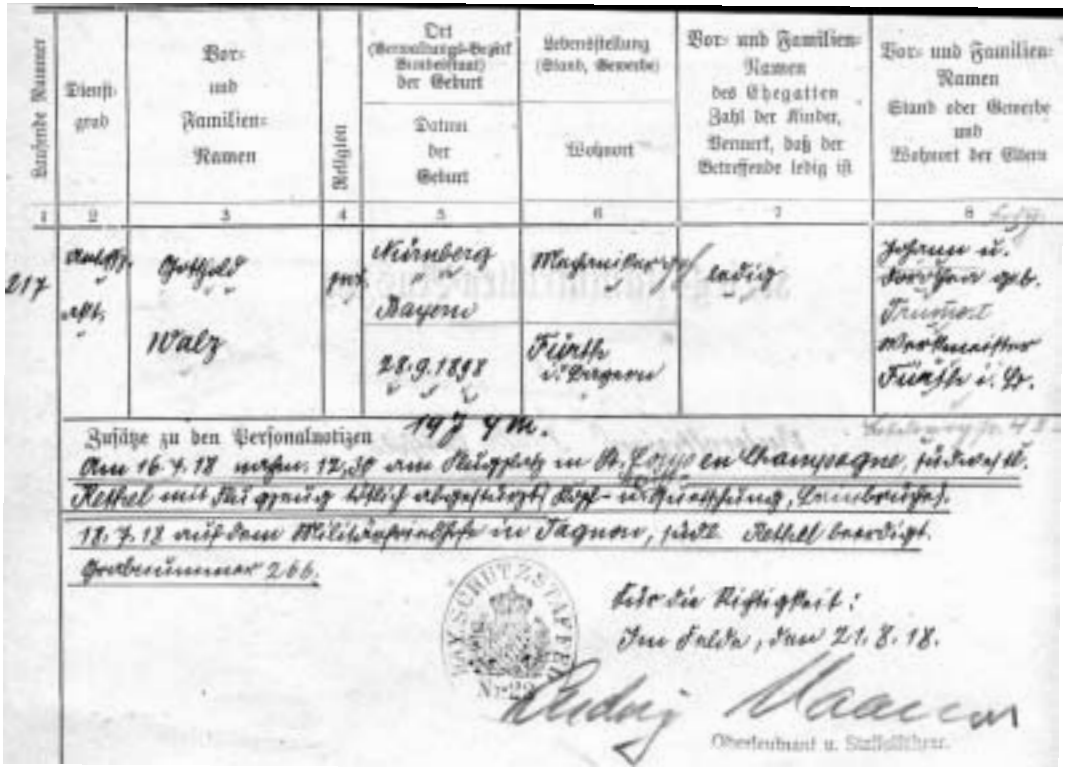 Laufende Nummer
Dienst-
grad
Vor-
und
Familien-
Namen
Religion
Ort
(Verwaltungs-Bezirk
Bundesstaat)
der Geburt
Datum
der
Geburt
Lebensstellung
(Stand, Gewerbe)
Wohnort
Vor- und Familien-
Namen
des Ehegatten
Zahl der Kinder,
Vermerk, daß der
Betreffende ledig ist
Vor- und Familien-
Namen
Stand oder Gewerbe
und
Wohnort der Eltern
1 2 3 4 5 6 7 8
217
Gotthold
Walz
Nürnberg
Bayern
28.9.1898
Mechaniker
Fürth
i. Bayern
ledig
Johann u.
geb.
Werkmeister
Fürth i. B.
Zusätze zu den Personalnotizen
Am 16.7.18 nachm. 12,30 am Flugplatz in St. en Champagne, südwestl.
Rethel mit Flugzeug tötlich abgestürzt (Kopf- u. Quetschung, Beinbrüche).
18.7.18 auf dem Militärfriedhofe in Tagnon, südl. Rethel beerdigt.
Grabnummer 266.
Für die Richtigkeit:
Im Felde, den 21.8.18.
BAY. SCHUTZSTAFFEL
Nr. 22
Ludwig
Oberleutnant u. Staffelführer.